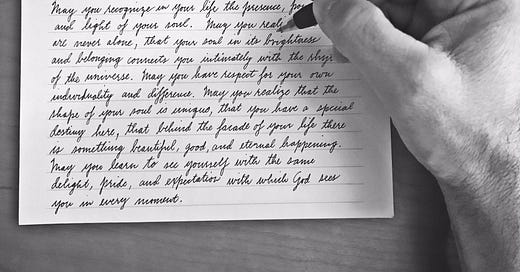 May you recognize in your life the presence,
and light of your soul. May you realize
are never alone, that your soul in its brightness
and belonging connects you intimately with the
of the universe. May you have respect for your own
individuality and difference. May you realize that the
shape of your soul is unique, that you have a special
destiny here, that behind the facade of your life there
is something beautiful, good, and eternal happening.
May you learn to see yourself with the same
delight, pride, and expectation with which God sees
you in every moment.